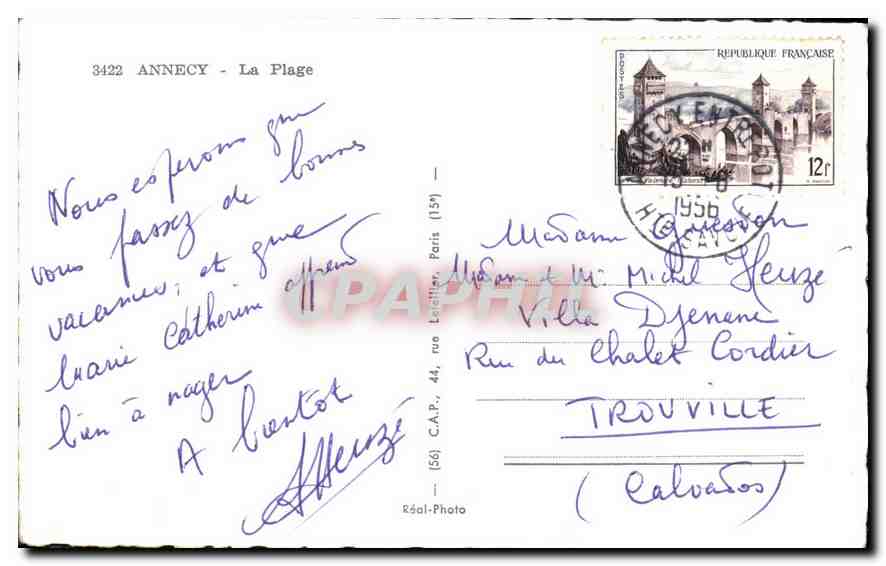 3422 ANNECY - La Plage
Nous esperons que
vous passez de bonnes
vacances, et que
Marie Catherine apprend
bien à nager
A bientot
Heuzé
(56) C.A.P., 44, rue Letellier, Paris (15e)
Réal-Photo
REPUBLIQUE FRANÇAISE
POSTES
12f
ANNECY ENTREPOT
1956
HTE SAVOIE
Madame
Madame et Mr Michel Heuzé
Villa Djenane
Rue du Chalet Cordier
TROUVILLE
(Calvados)
CPARHIL